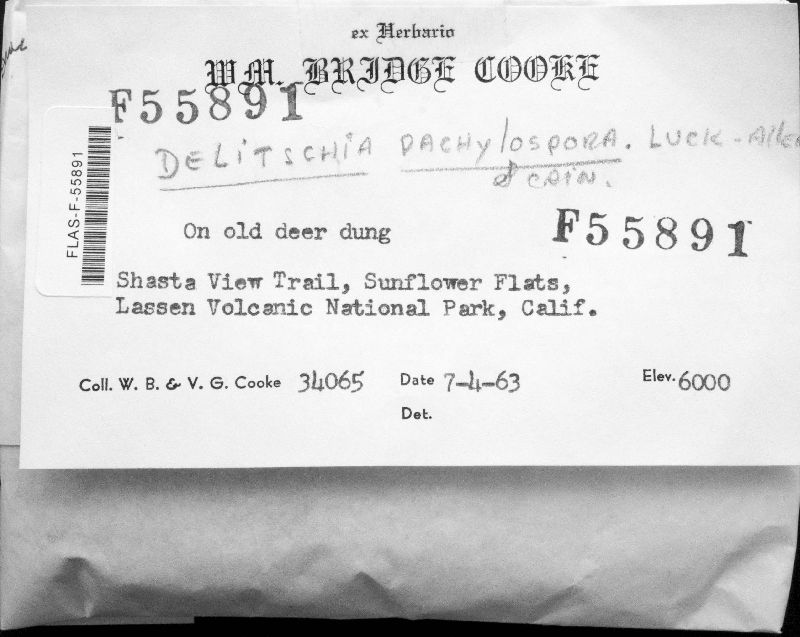 ex Herbario
WM. BRIDGE COOKE
F55891
DELITSCHIA PACHYLOSPORA. LUCK-Allen
& CAIN.
FLAS-F-55891
On old deer dung
F55891
Shasta View Trail, Sunflower Flats,
Lassen Volcanic National Park, Calif.
Coll. W. B. & V. G. Cooke 34065 Date 7-4-63 Elev. 6000
Det.